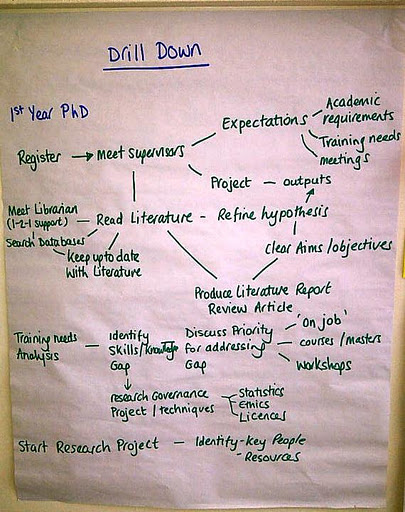 Drill Down
1st Year PhD
Academic
requirements
Expectations
Training needs
meetings
Register → Meet Supervisors
Project – outputs
Meet Librarian
(1-2-1 support)
Read Literature – Refine hypothesis
Search Databases
Keep up to date
with Literature
Clear Aims/objectives
Produce Literature Report
Review Article
Training needs
Analysis
Identify
Skills/Knowledge
Gap
Discuss Priority
for addressing
Gap
'On job'
courses/masters
Workshops
research Governance
Project/techniques
Statistics
Ethics
Licences
Start Research Project – Identify-Key People
-Resources